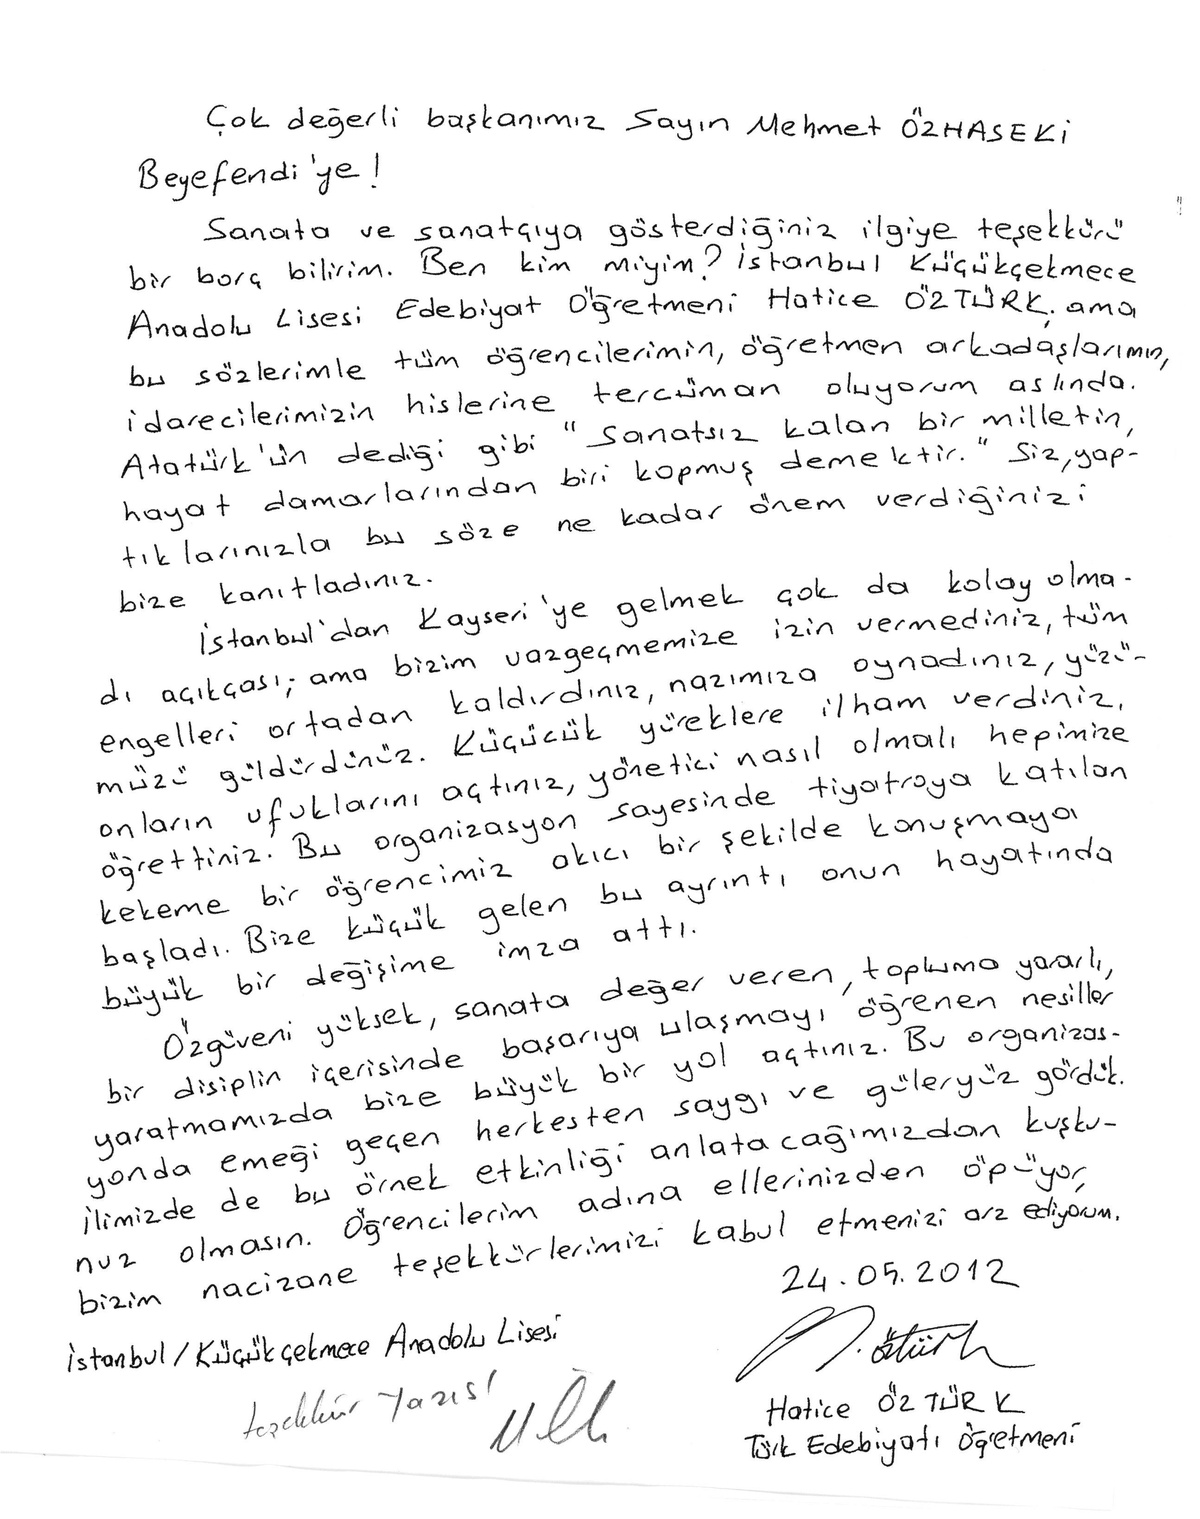 Çok değerli başkanımız Sayın Mehmet ÖZHASEKİ
Beyefendi'ye!
Sanata ve sanatçıya gösterdiğiniz ilgiye teşekkürü
bir borç bilirim. Ben kim miyim? İstanbul Küçükçekmece
Anadolu Lisesi Edebiyat Öğretmeni Hatice ÖZTÜRK, ama
bu sözlerimle tüm öğrencilerimin, öğretmen arkadaşlarımın,
idarecilerimizin hislerine tercüman oluyorum aslında.
Atatürk'ün dediği gibi "Sanatsız kalan bir milletin,
hayat damarlarından biri kopmuş demektir." Siz, yap-
tıklarınızla bu söze ne kadar önem verdiğinizi
bize kanıtladınız.
İstanbul'dan Kayseri'ye gelmek çok da kolay olma-
dı açıkçası; ama bizim vazgeçmemize izin vermediniz, tüm
engelleri ortadan kaldırdınız, nazımıza oynadınız, yüzü-
müzü güldürdünüz. Küçücük yüreklere ilham verdiniz,
onların ufuklarını açtınız, yönetici nasıl olmalı hepimize
öğrettiniz. Bu organizasyon sayesinde tiyatroya katılan
kekeme bir öğrencimiz akıcı bir şekilde konuşmaya
başladı. Bize küçük gelen bu ayrıntı onun hayatında
büyük bir değişime imza attı.
Özgüveni yüksek, sanata değer veren, topluma yararlı,
bir disiplin içerisinde başarıya ulaşmayı öğrenen nesiller
yaratmamızda bize büyük bir yol açtınız. Bu organizas-
yonda emeği geçen herkesten saygı ve güleryüz gördük.
İlimizde de bu örnek etkinliği anlatacağımızdan kuşku-
nuz olmasın. Öğrencilerim adına ellerinizden öpüyor,
bizim nacizane teşekkürlerimizi kabul etmenizi arz ediyorum.
24.05.2012
İstanbul/Küçükçekmece Anadolu Lisesi
teşekkür yazısı
Hatice ÖZTÜRK
Türk Edebiyatı Öğretmeni